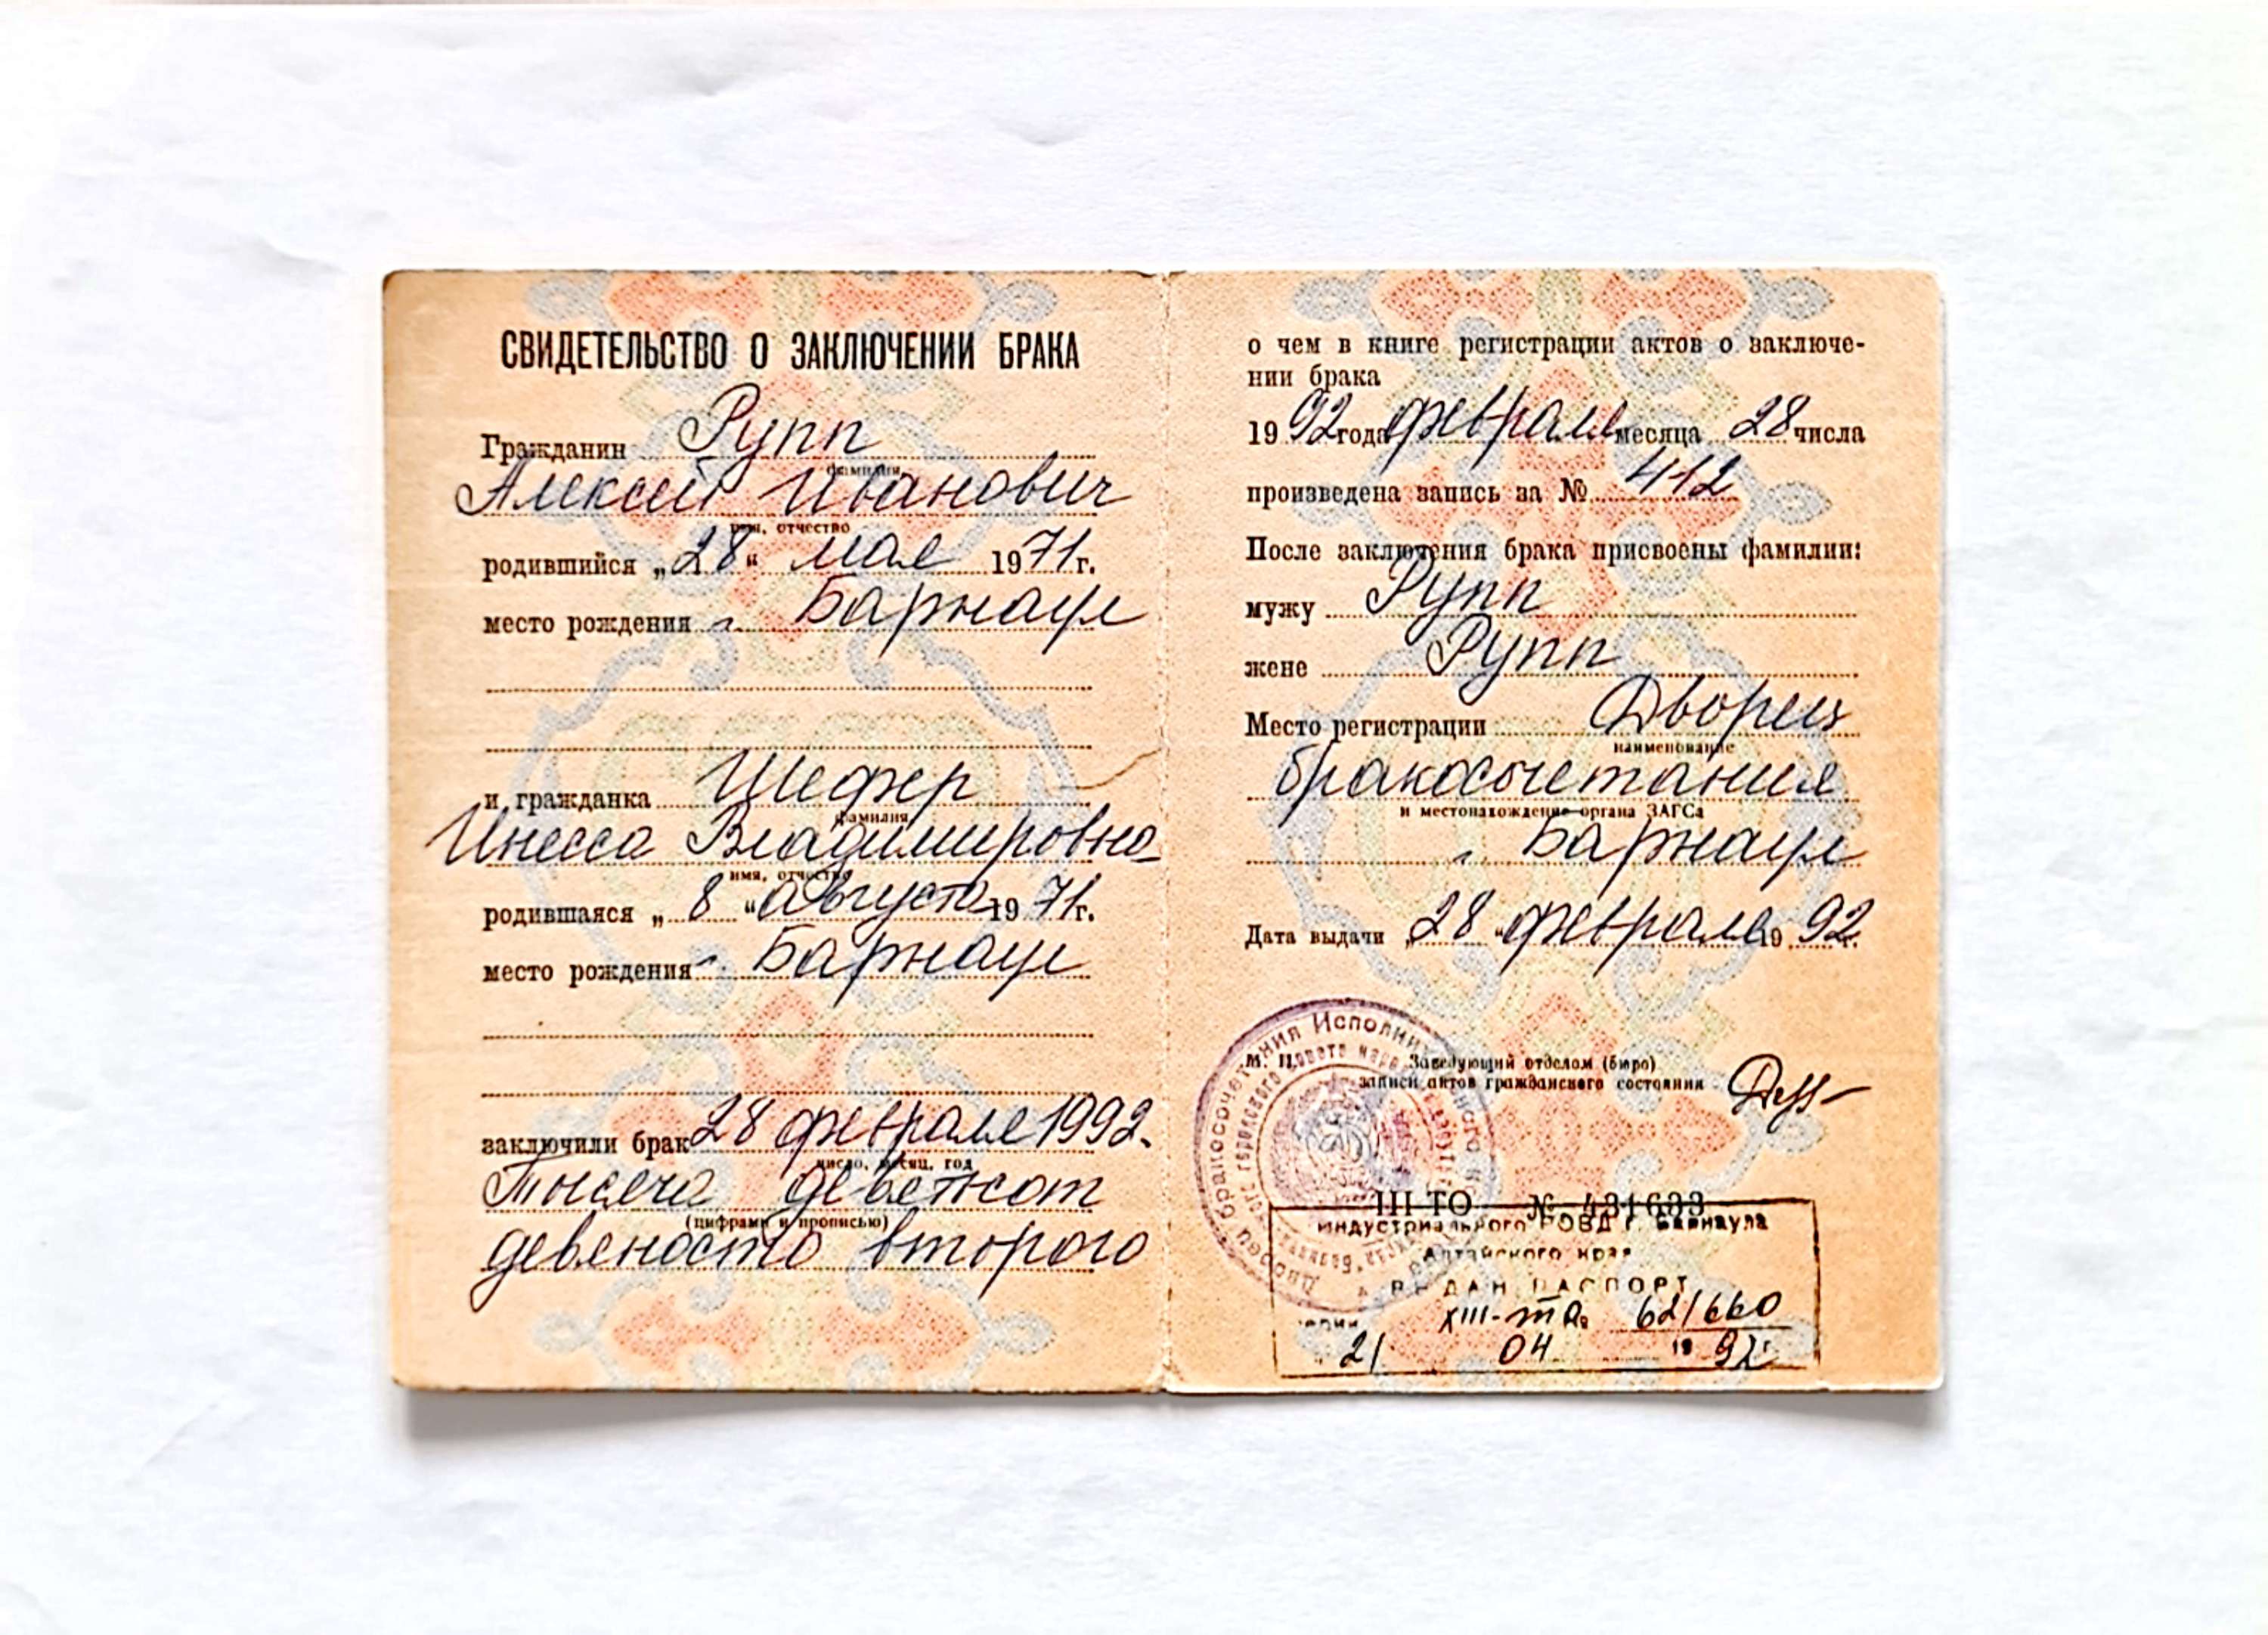 СВИДЕТЕЛЬСТВО О ЗАКЛЮЧЕНИИ БРАКА
Гражданин Рупп
фамилия
Алексей Иванович
имя, отчество
родившийся „28“ мая 1971г.
место рождения г. Барнаул
и гражданка Шефер
фамилия
Инесса Владимировна
имя, отчество
родившаяся „8“ августа 1971г.
место рождения г. Барнаул
заключили брак 28 февраля 1992.
число, месяц, год
Тысяча девятьсот
(цифрами и прописью)
девяносто второго
о чем в книге регистрации актов о заключе-
нии брака
1992 года февраля месяца 28 числа
произведена запись за № 412
После заключения брака присвоены фамилии:
мужу Рупп
жене Рупп
Место регистрации Дворец
наименование
бракосочетания
и местонахождение органа ЗАГСа
г. Барнаул
Дата выдачи „28“ февраля 1992г.
М. П. Заведующий отделом (бюро)
записи актов гражданского состояния
III-ТО № 431633
Индустриального РОВД г. Барнаула
Алтайского края
ВЫДАН ПАСПОРТ
серии XIII-ТО № 621660
21 04 1992г.